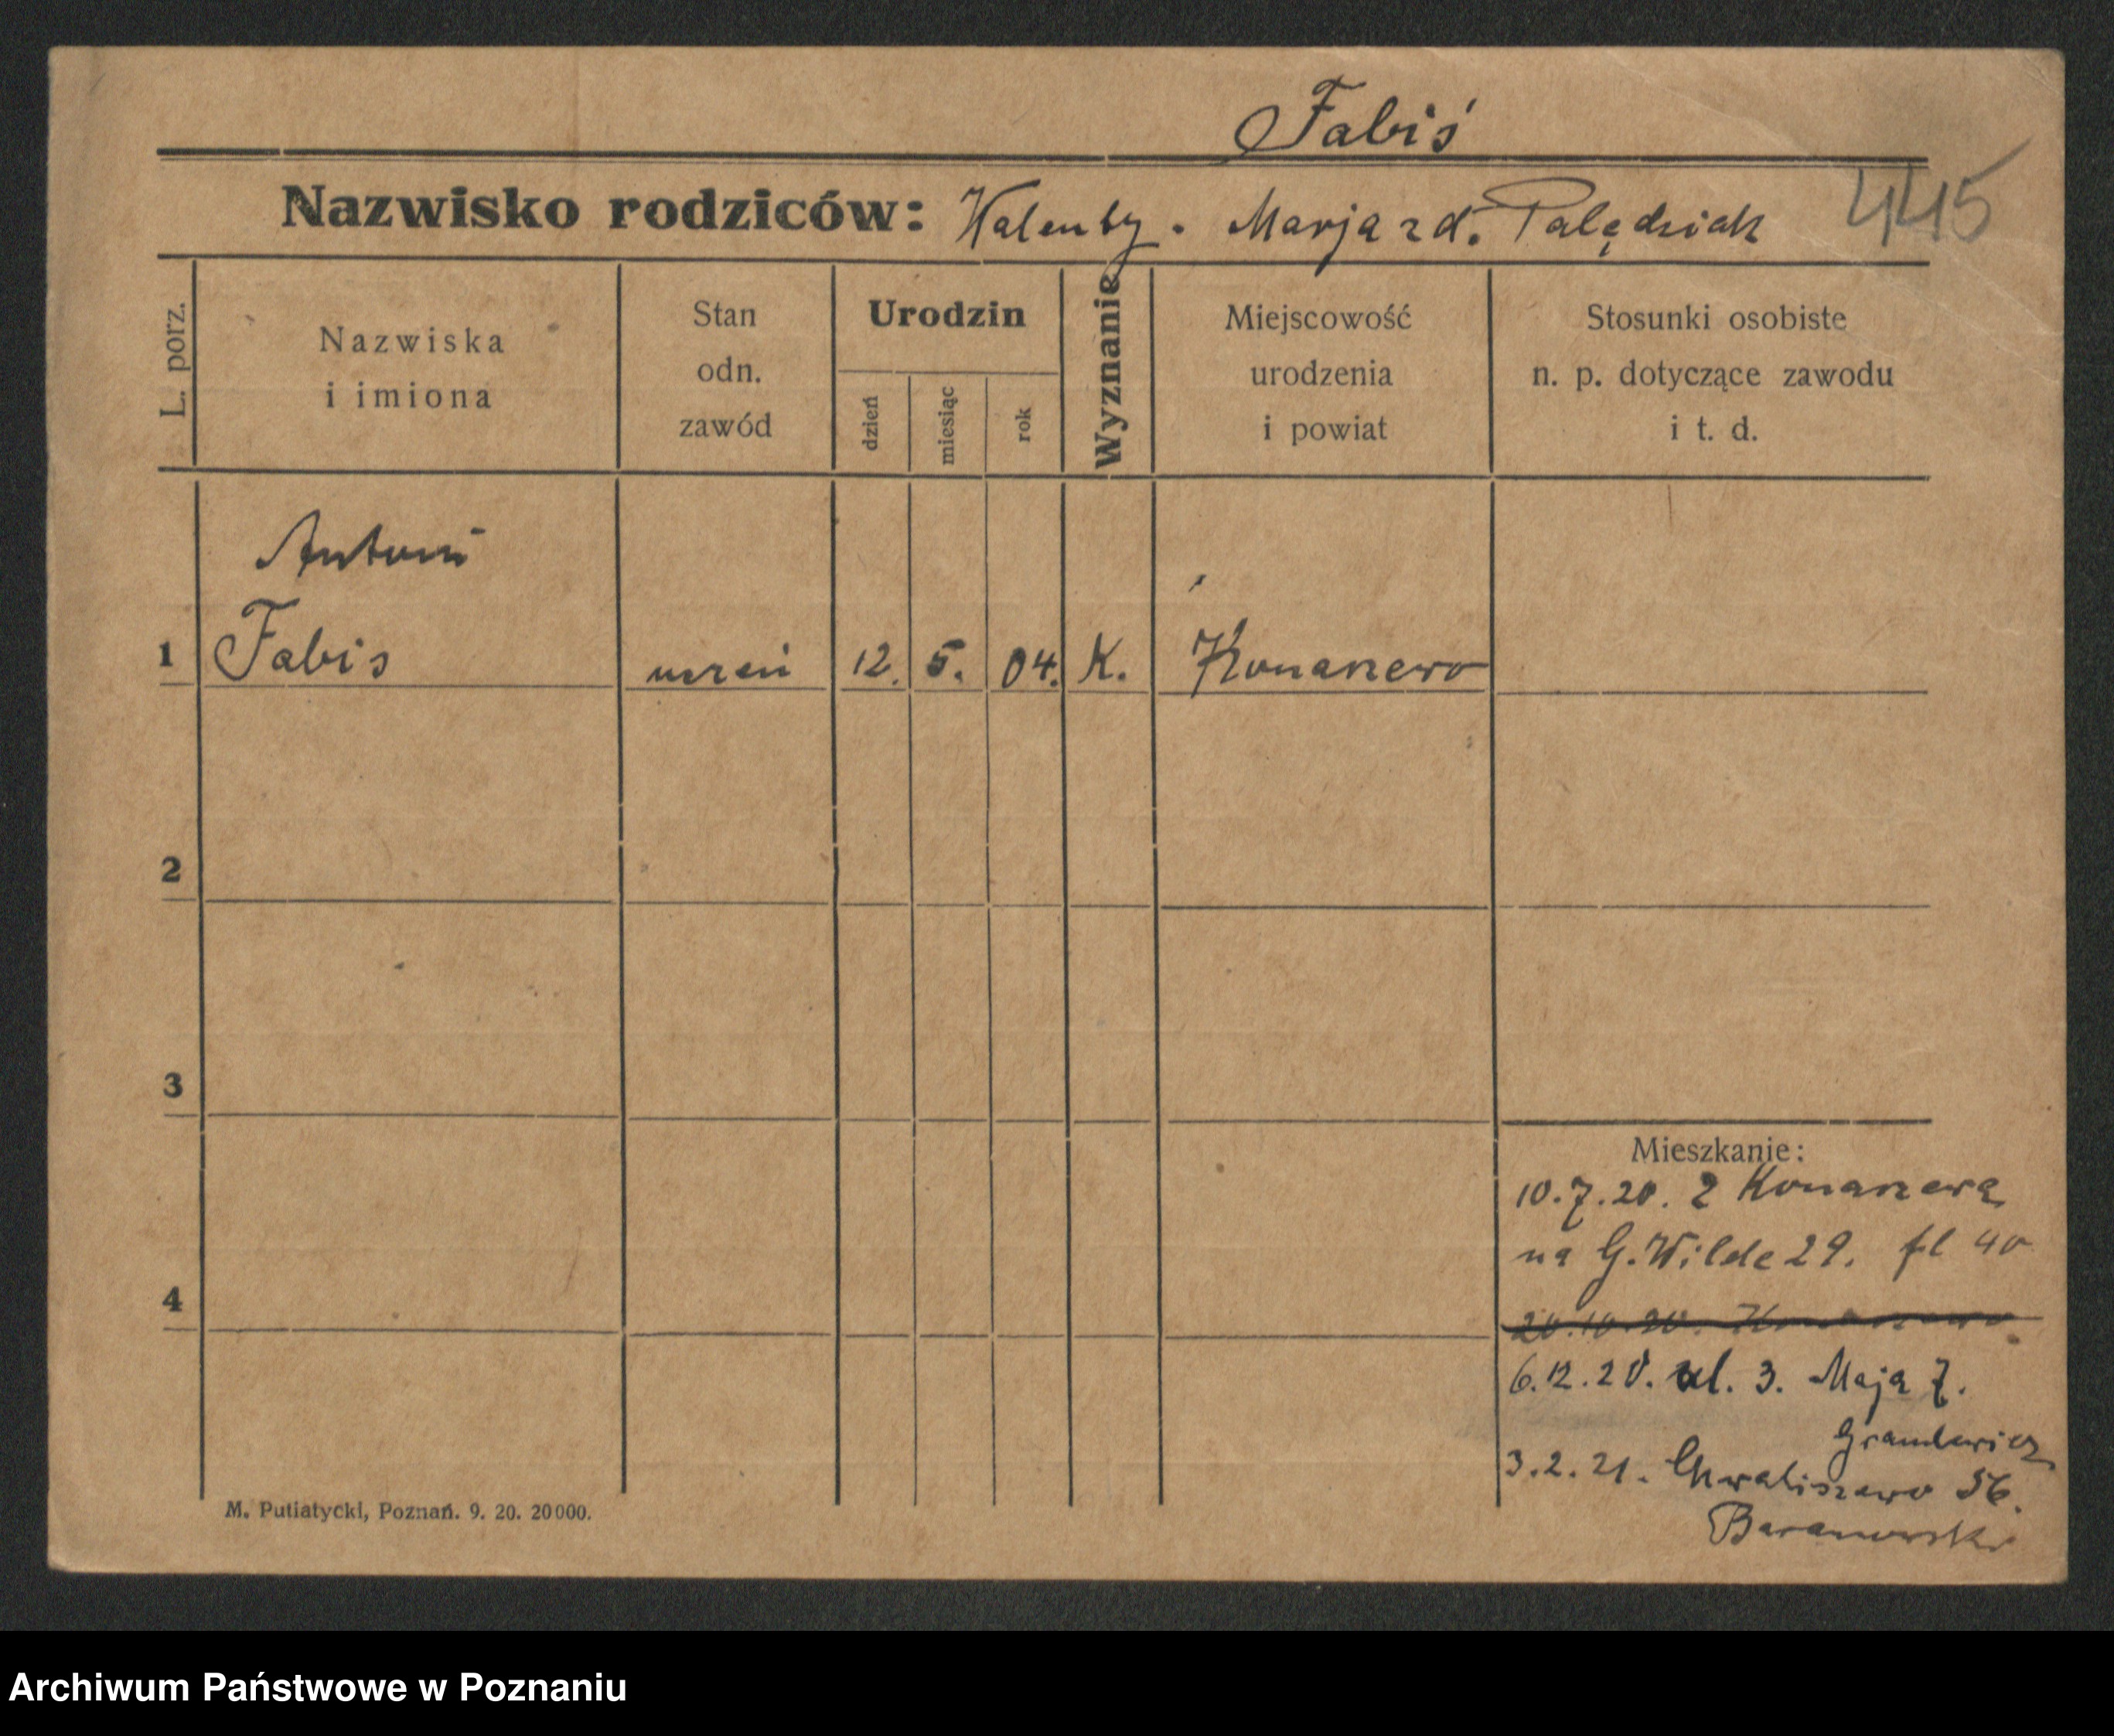 Fabiś
Nazwisko rodziców: Walenty. Marja zd. Palędziak 445
L. porz.
Nazwiska
i imiona
Stan
odn.
zawód
Urodzin
dzień
miesiąc
rok
Wyznanie
Miejscowość
urodzenia
i powiat
Stosunki osobiste
n. p. dotyczące zawodu
i t. d.
Antoni
1 Fabis uczeń 12. 5. 04. K. Konarzewo
2
3
Mieszkanie:
10.7.20. z Konarzewa
na G. Wilde 29.
4
20.10.20. Konarzewo
6.12.20. ul. 3. Maja 7.
3.2.21. Chwaliszewo 56.
Baranowski
M. Putiatycki, Poznań. 9. 20. 20000.
Archiwum Państwowe w Poznaniu